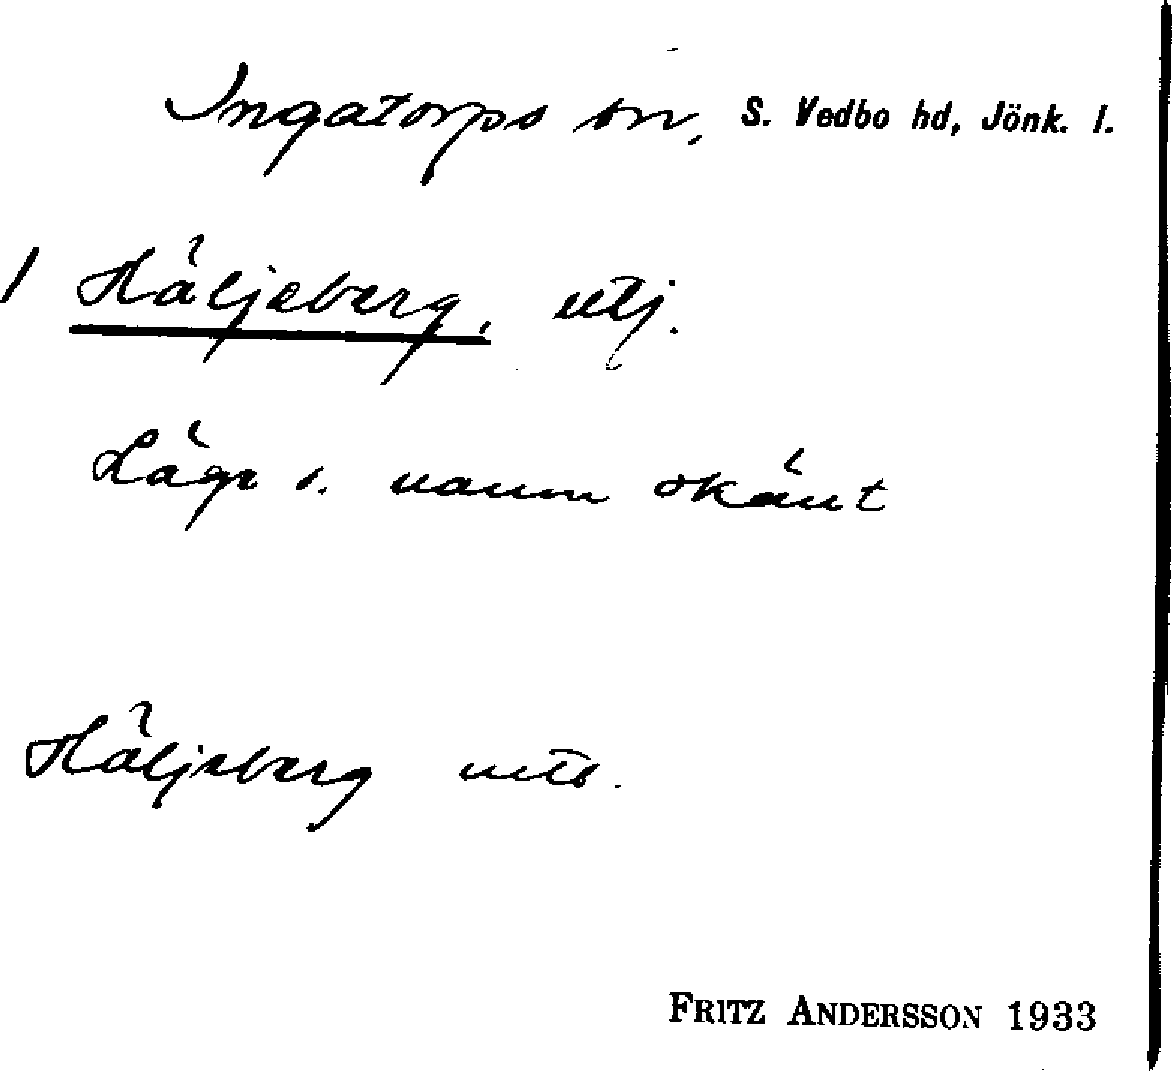 Ingatorps sn, S. Vedbo hd, Jönk. l.
1 Häljeberg, utj.
Läge o. namn okänt
Häljeberg utj.
FRITZ ANDERSSON 1933